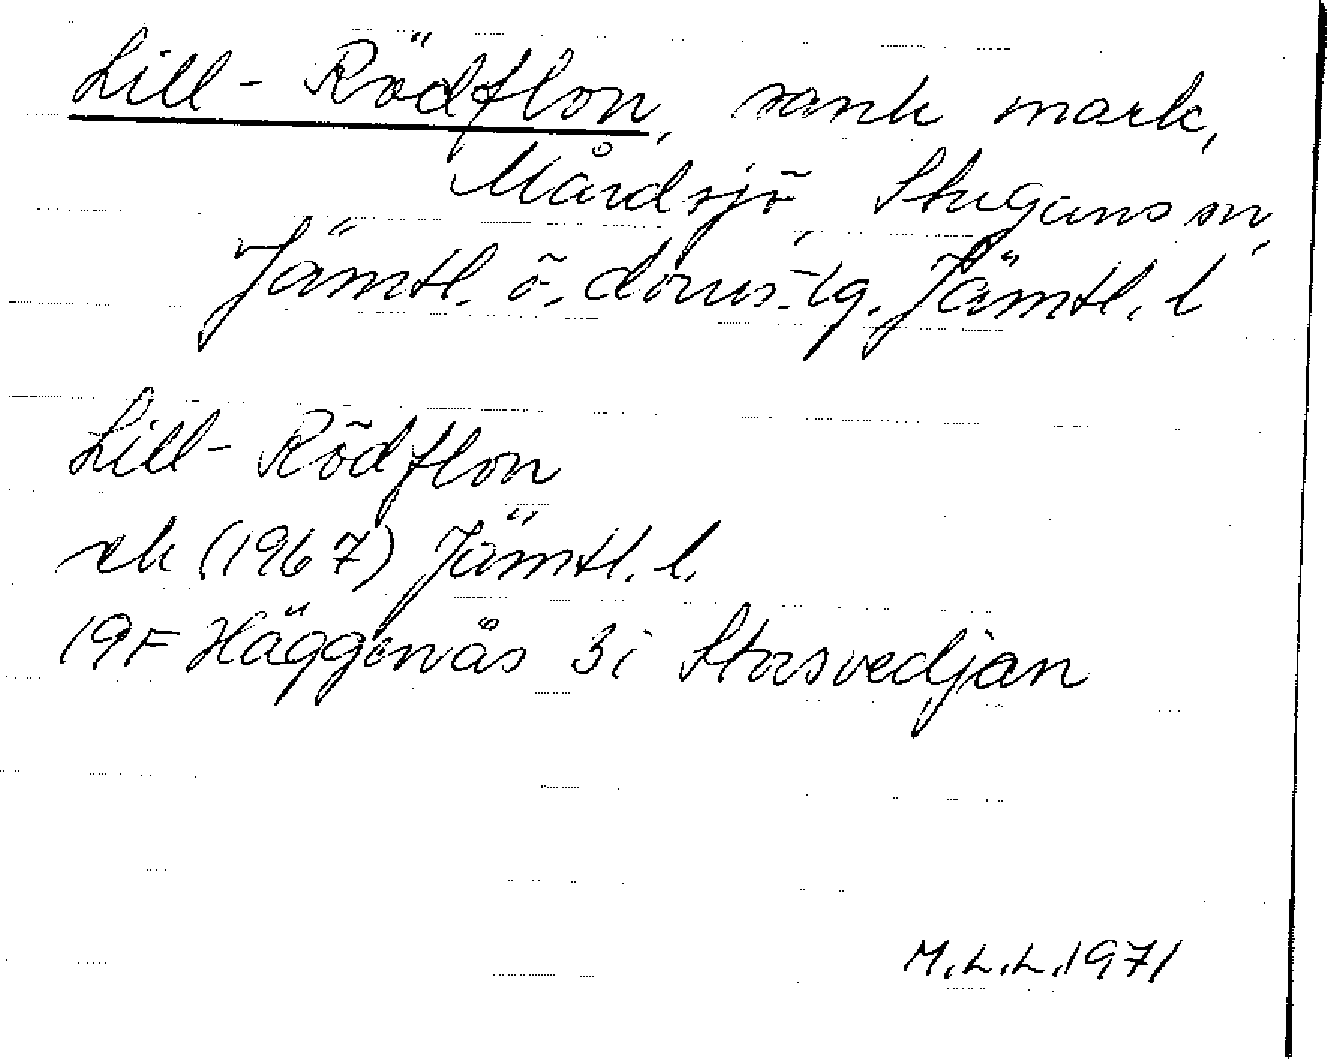 Lill-Rödflon, sank mark,
Mårdsjö, Stuguns sn,
Jämtl. ö. doms.-lg. Jämtl. l
Lill-Rödflon
ek (1967) Jämtl. l.
19F Häggenås 3i Storsvedjan
M.L.L. 1971